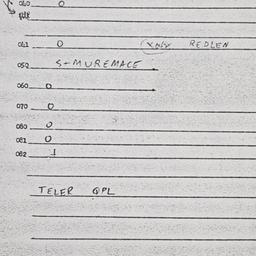 060 0
041 0 REDLEN
050 S+MUREMACE
060 0
070 0
080 0
081 0
082 1
TELER QPL